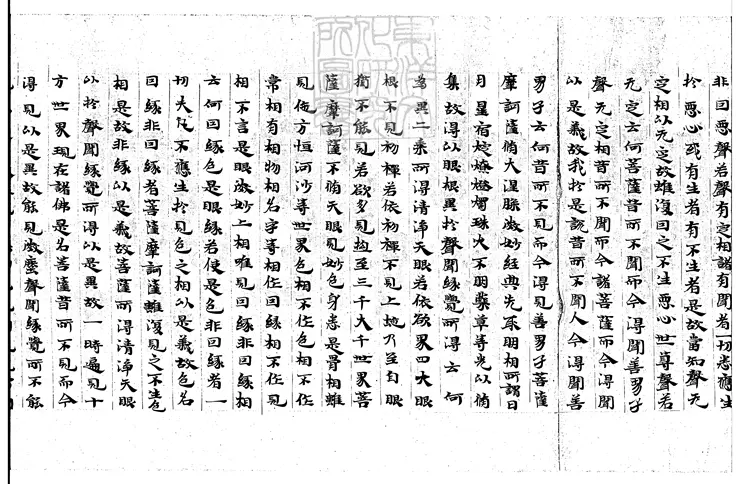 非因惡聲若聲有定相諸有聞者一切悉應生
於惡心或有生者有不生者是故當知聲无
定相以无定故雖復因之不生惡心世尊聲若
无定云何菩薩昔所不聞而今得聞善男子
聲无定相昔所不聞而今諸菩薩而今得聞
以是義故我於是說昔所不聞人今得聞善
男子云何昔所不見而今得見善男子菩薩
摩訶薩脩大涅槃微妙經典先取明相所謂日
月星宿㷝燎燈燭珠火不明藥草等光以脩
集故得以眼根異於聲聞緣覺所得云何
為異二乘所得清淨天眼若依欲界四大眼
根不見初禪若依初禪不見上地乃至自眼
猶不能見若欲多見極至三千大千世界菩
薩摩訶薩不脩天眼見妙色身悉是骨相雖
見他方恒河沙等世界色相不作色相不作
常相有相物相名字等相作因緣相不作見
相不言是眼微妙上相唯見因緣非因緣相
云何因緣色是眼緣若使是色非因緣者一
切夫不應生於見色之相以是義故色名
因緣非因緣者菩薩摩訶薩雖復見之不生色
相是故非緣以是義故菩薩所得清淨天眼
以於聲聞緣覺所得以是異故一時遍見十
方世界現在諸佛是名菩薩昔所不見而今
得見以是異故能見微塵聲聞緣覺所不能